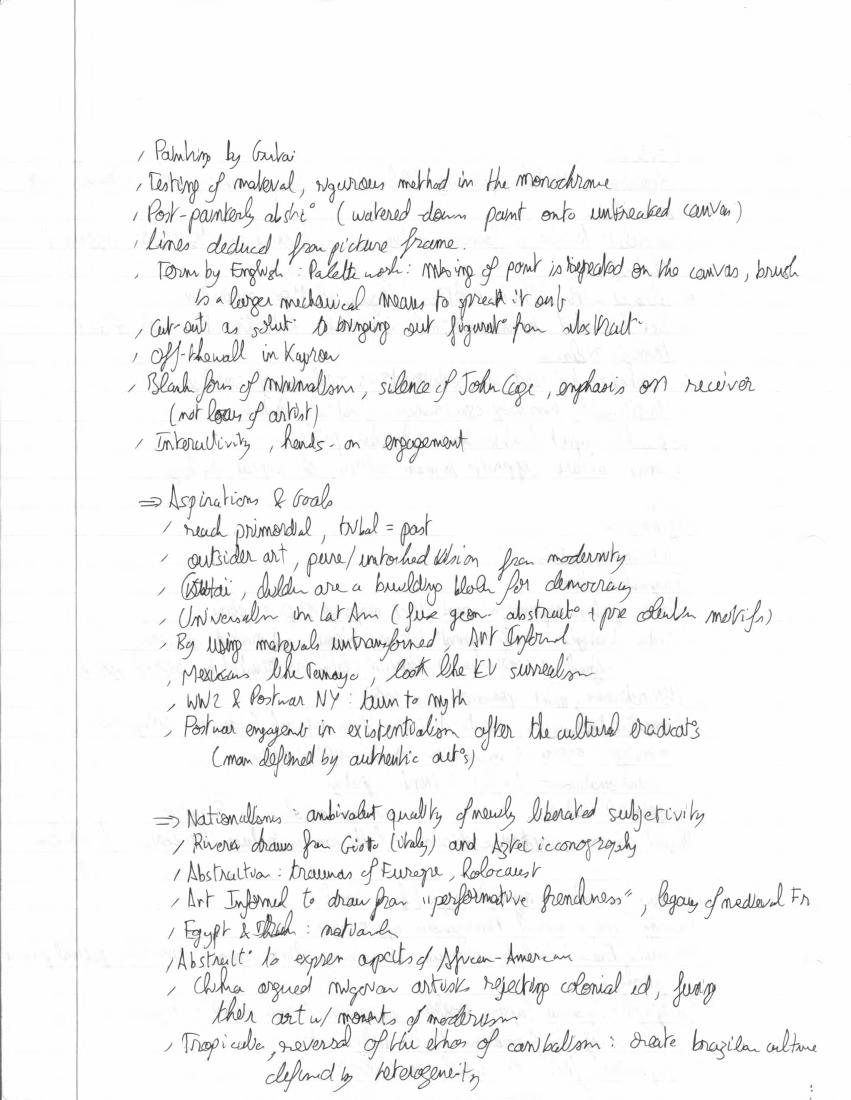 / Painting by Gutai
/ Testing of material, rigurous method in the monochrome
/ Post-painterly abstr° (watered-down paint onto untreated canvas)
/ Lines deduced from picture frame.
/ Term by English : Palette work : mixing of paint is repeated on the canvas, brush
is a larger mechanical means to spread it out
/ Cut-out as solut° to bringing out figurat° from abstract°
/ Off-thewall in Kaprow
/ Blank form of minimalism, silence of John Cage, emphasis on receiver
(not locus of artist)
/ Interactivity, hands-on engagement
⇒ Aspirations & Goals
/ reach primordial, tribal = past
/ outsider art, pure/untouched vision from modernity
/ Gutai, children are a building block for democracy
/ Universalism in Lat Am (fuse geom. abstract° + pre columbian motifs)
/ By using materials untransformed, Art Informel
/ Mexicans like Tamayo, look like EU surrealism
/ WW2 & Postwar NY : turn to myth
/ Postwar engagent in existentialism after the cultural eradicat°s
(man defined by authentic act°s)
⇒ Nationalisms : ambivalent quality of newly liberated subjectivity
/ Rivera draws from Giotto (italy) and Aztec icconography
/ Abstraction : traumas of Europe, Holocaust
/ Art Informel to draw from "performative frenchness", legacy of medieval Fr
/ Egypt &
/ Abstract° to express aspects of African-American
/ Chika argued nigerian artists rejecting colonial id, fusing
their art w/ moments of modernism
/ Tropicalia, reversal of the ethos of canibalism : create brazilian culture
defined by heterogeneity